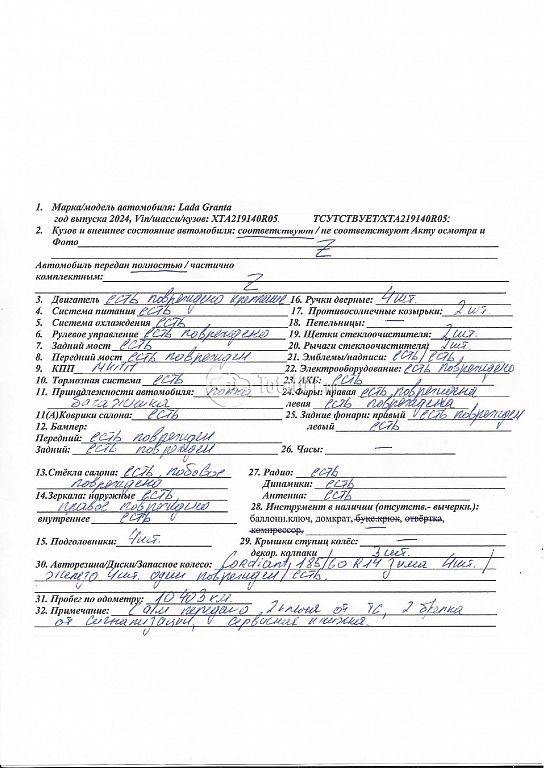 1. Марка/модель автомобиля: Lada Granta
год выпуска 2024, Vin/шасси/кузов: XTA219140R05 ТСУТСТВУЕТ/XTA219140R05:
2. Кузов и внешнее состояние автомобиля: соответствуют / не соответствуют Акту осмотра и
Фото Z
Автомобиль передан полностью / частично
комплектным: Z
3. Двигатель есть повреждено крепление 16. Ручки дверные: 4 шт.
4. Система питания есть 17. Противосолнечные козырьки: 2 шт.
5. Система охлаждения есть 18. Пепельницы: —
6. Рулевое управление есть повреждено 19. Щетки стеклоочистителя: 2 шт.
7. Задний мост есть 20. Рычаги стеклоочистителя: 2 шт.
8. Передний мост есть поврежден 21. Эмблемы/надписи: есть/есть
9. КПП МКПП 22. Электрооборудование: есть повреждено
10. Тормозная система есть 23. АКБ: есть
11. Принадлежности автомобиля: полка 24. Фары: правая есть, повреждена
багажника левая есть повреждена
11(А)Коврики салона: есть 25. Задние фонари: правый есть поврежден
12. Бампер: левый есть
Передний: есть поврежден
Задний: есть поврежден 26. Часы: —
13. Стёкла салона: есть, лобовое 27. Радио: есть
повреждено Динамики: есть
14. Зеркала: наружные есть, Антенна: есть
правое повреждено 28. Инструмент в наличии (отсутств.- вычеркн.):
внутреннее есть баллонн.ключ, домкрат, букс.крюк, отвёртка,
компрессор, —
15. Подголовники: 4 шт. 29. Крышки ступиц колёс: —
декор. колпаки 3 шт.
30. Авторезина/Диски/Запасное колесо: Cordiant, 185/60 R14 зима 4 шт. /
железо 4 шт. один поврежден / есть.
31. Пробег по одометру: 10 403 км.
32. Примечание: передано, 2 ключа от ТС, 2 брелка
от сигнализации, сервисная книжка.